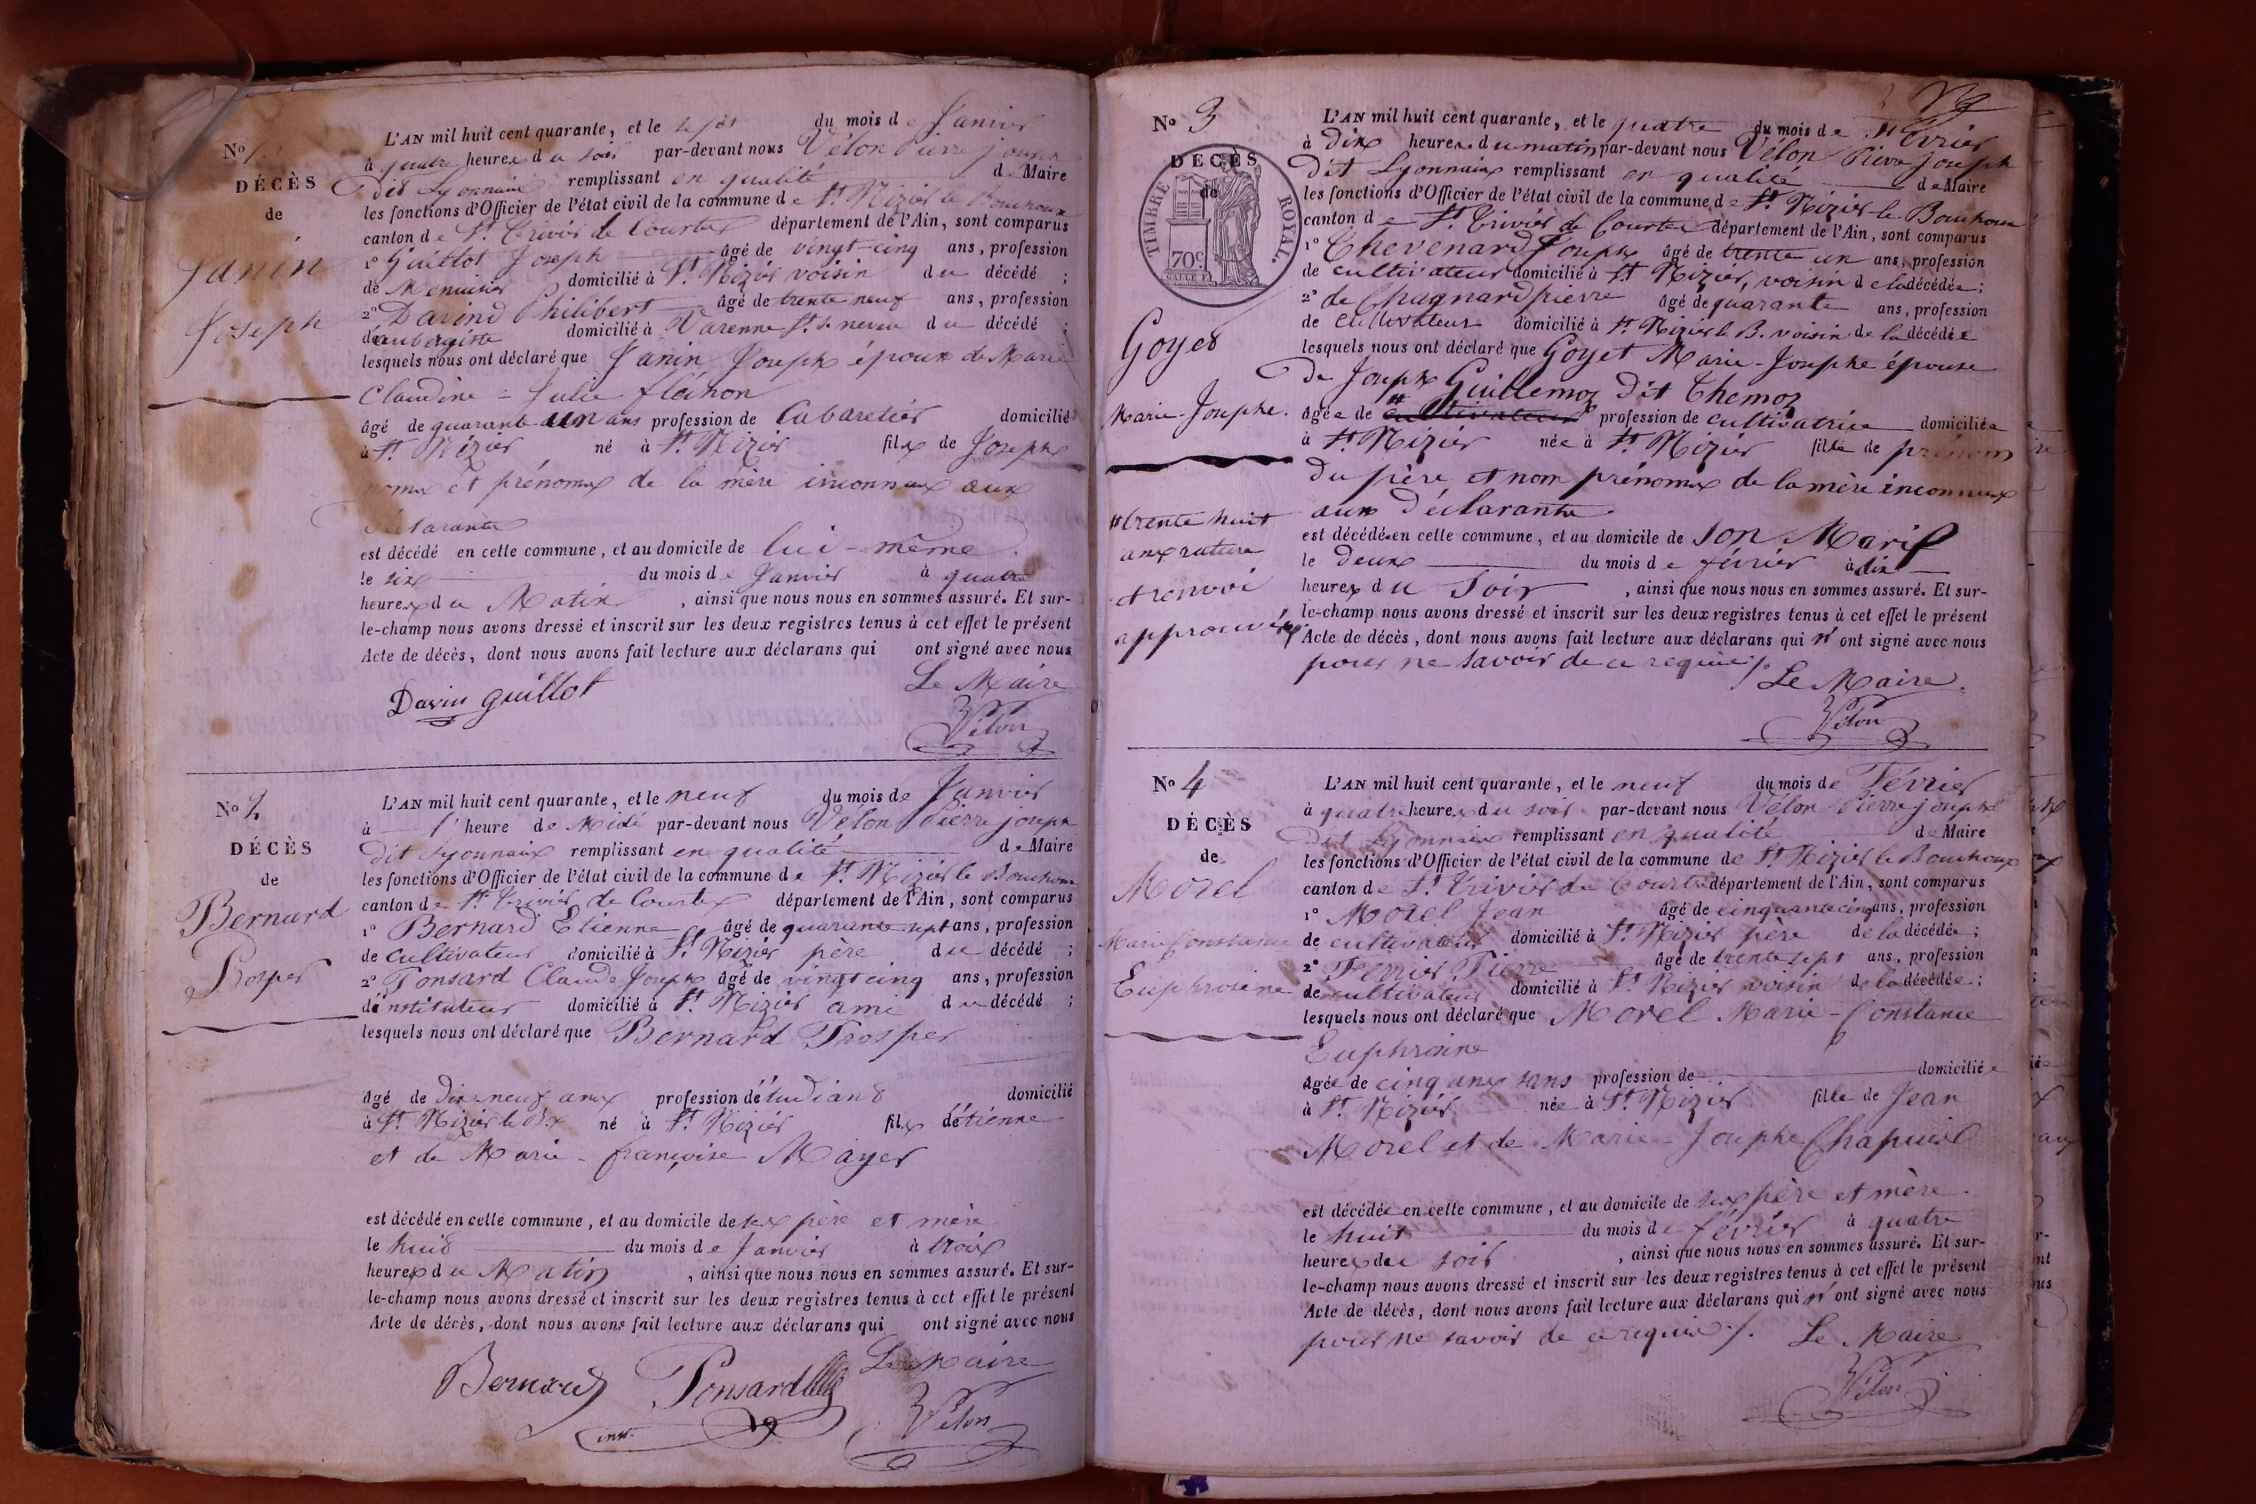 No 1
DÉCÈS
de
Janin
Joseph
L'AN mil huit cent quarante, et le sept du mois de Janvier
à quatre heures du soir par-devant nous Vélon Pierre joseph
dit Lyonnais remplissant en qualité de Maire
les fonctions d'Officier de l'état civil de la commune de St. Nizier le Bouchoux
canton de St. Trivier de Courtes département de l'Ain, sont comparus
1° Guillot Joseph âgé de vingt-cinq ans, profession
de Menuisier domicilié à St. Nizier voisin du décédé ;
2° Davind Philibert âgé de trente neuf ans, profession
d'aubergiste domicilié à Varenne St. du décédé ;
lesquels nous ont déclaré que Janin Joseph époux de Marie
Claudine - Julie
âgé de quarante un ans profession de Cabaretier domicilié
à St. Nizier né à St. Nizier fils de Joseph
noms et prénoms de la mère inconnus aux
déclarants
est décédé en cette commune, et au domicile de lui-même.
le six du mois de Janvier à quatre
heures du Matin, ainsi que nous nous en sommes assuré. Et sur-
le-champ nous avons dressé et inscrit sur les deux registres tenus à cet effet le présent
Acte de décès, dont nous avons fait lecture aux déclarans qui ont signé avec nous
Le Maire
Davin guillot
Vélon
No 2
DÉCÈS
de
Bernard
Prosper
L'AN mil huit cent quarante, et le neuf du mois de Janvier
à heure de Midi par-devant nous Vélon Pierre joseph
dit Lyonnais remplissant en qualité de Maire
les fonctions d'Officier de l'état civil de la commune de St. Nizier le Bouchoux
canton de St. Trivier de Courtes département de l'Ain, sont comparus
1° Bernard Etienne âgé de quarante sept ans, profession
de cultivateur domicilié à St. Nizier père du décédé ;
2° Ponsard Claude Joseph âgé de vingt cinq ans, profession
d'instituteur domicilié à St. Nizier ami du décédé ;
lesquels nous ont déclaré que Bernard Prosper
âgé de Dix-neuf ans profession d'étudiant domicilié
à St. Nizier le Bx né à St. Nizier fils d'étienne
et de Marie-françoise Mayer
est décédé en cette commune, et au domicile de ses père et mère
le huit du mois de Janvier à trois
heures du Matin, ainsi que nous nous en sommes assuré. Et sur-
le-champ nous avons dressé et inscrit sur les deux registres tenus à cet effet le présent
Acte de décès, dont nous avons fait lecture aux déclarans qui ont signé avec nous
Le Maire
Bernard Ponsard
inst.
Vélon
No 3
DÉCÈS
de
TIMBRE ROYAL.
70c.
Goyet
Marie-Josephe.
# trente huit
ans rature
et renvoi
approuvés
L'AN mil huit cent quarante, et le quatre du mois de février
à dix heures du matin par-devant nous Vélon Pierre joseph
dit Lyonnais remplissant en qualité de Maire
les fonctions d'Officier de l'état civil de la commune de St. Nizier le Bouchoux
canton de St. Trivier de Courtes département de l'Ain, sont comparus
1° Chevenard Joseph âgé de trente un ans, profession
de cultivateur domicilié à St. Nizier, voisin de la décédée ;
2° de Chagnard pierre âgé de quarante ans, profession
de cultivateur domicilié à St. Nizier le B. voisin de la décédée
lesquels nous ont déclaré que Goyet Marie-Josephe épouse
de Joseph Guillemoz Dit Chemoz
âgée de # cultivateur profession de cultivatrice domiciliée
à St. Nizier née à St. Nizier fille de prénom
du père et nom prénoms de la mère inconnus
aux Déclarants
est décédée en cette commune, et au domicile de son Mari
le deux du mois de février à dix
heures du soir, ainsi que nous nous en sommes assuré. Et sur-
le-champ nous avons dressé et inscrit sur les deux registres tenus à cet effet le présent
Acte de décès, dont nous avons fait lecture aux déclarans qui n'ont signé avec nous
pour ne savoir de ce requis /.
Le Maire.
Vélon
No 4
DÉCÈS
de
Morel
Marie Constance
Euphrosine
L'AN mil huit cent quarante, et le neuf du mois de Février
à quatre heures du soir par-devant nous Vélon Pierre joseph
dit Lyonnais remplissant en qualité de Maire
les fonctions d'Officier de l'état civil de la commune de St. Nizier le Bouchoux
canton de St. Trivier de Courtes département de l'Ain, sont comparus
1° Morel Jean âgé de cinquante cinq ans, profession
de cultivateur domicilié à St. Nizier père de la décédée ;
2° Ferrier Pierre âgé de trente sept ans, profession
de cultivateur domicilié à St. Nizier voisin de la décédée ;
lesquels nous ont déclaré que Morel Marie-Constance
Euphrosine
âgée de cinq ans sans profession de domiciliée
à St. Nizier née à St. Nizier fille de Jean
Morel et de Marie-Josephe Chapuis
est décédée en cette commune, et au domicile de ses père et mère.
le huit du mois de février à quatre
heures du soir, ainsi que nous nous en sommes assuré. Et sur-
le-champ nous avons dressé et inscrit sur les deux registres tenus à cet effet le présent
Acte de décès, dont nous avons fait lecture aux déclarans qui n'ont signé avec nous
pour ne savoir de ce requis /. Le Maire
Vélon